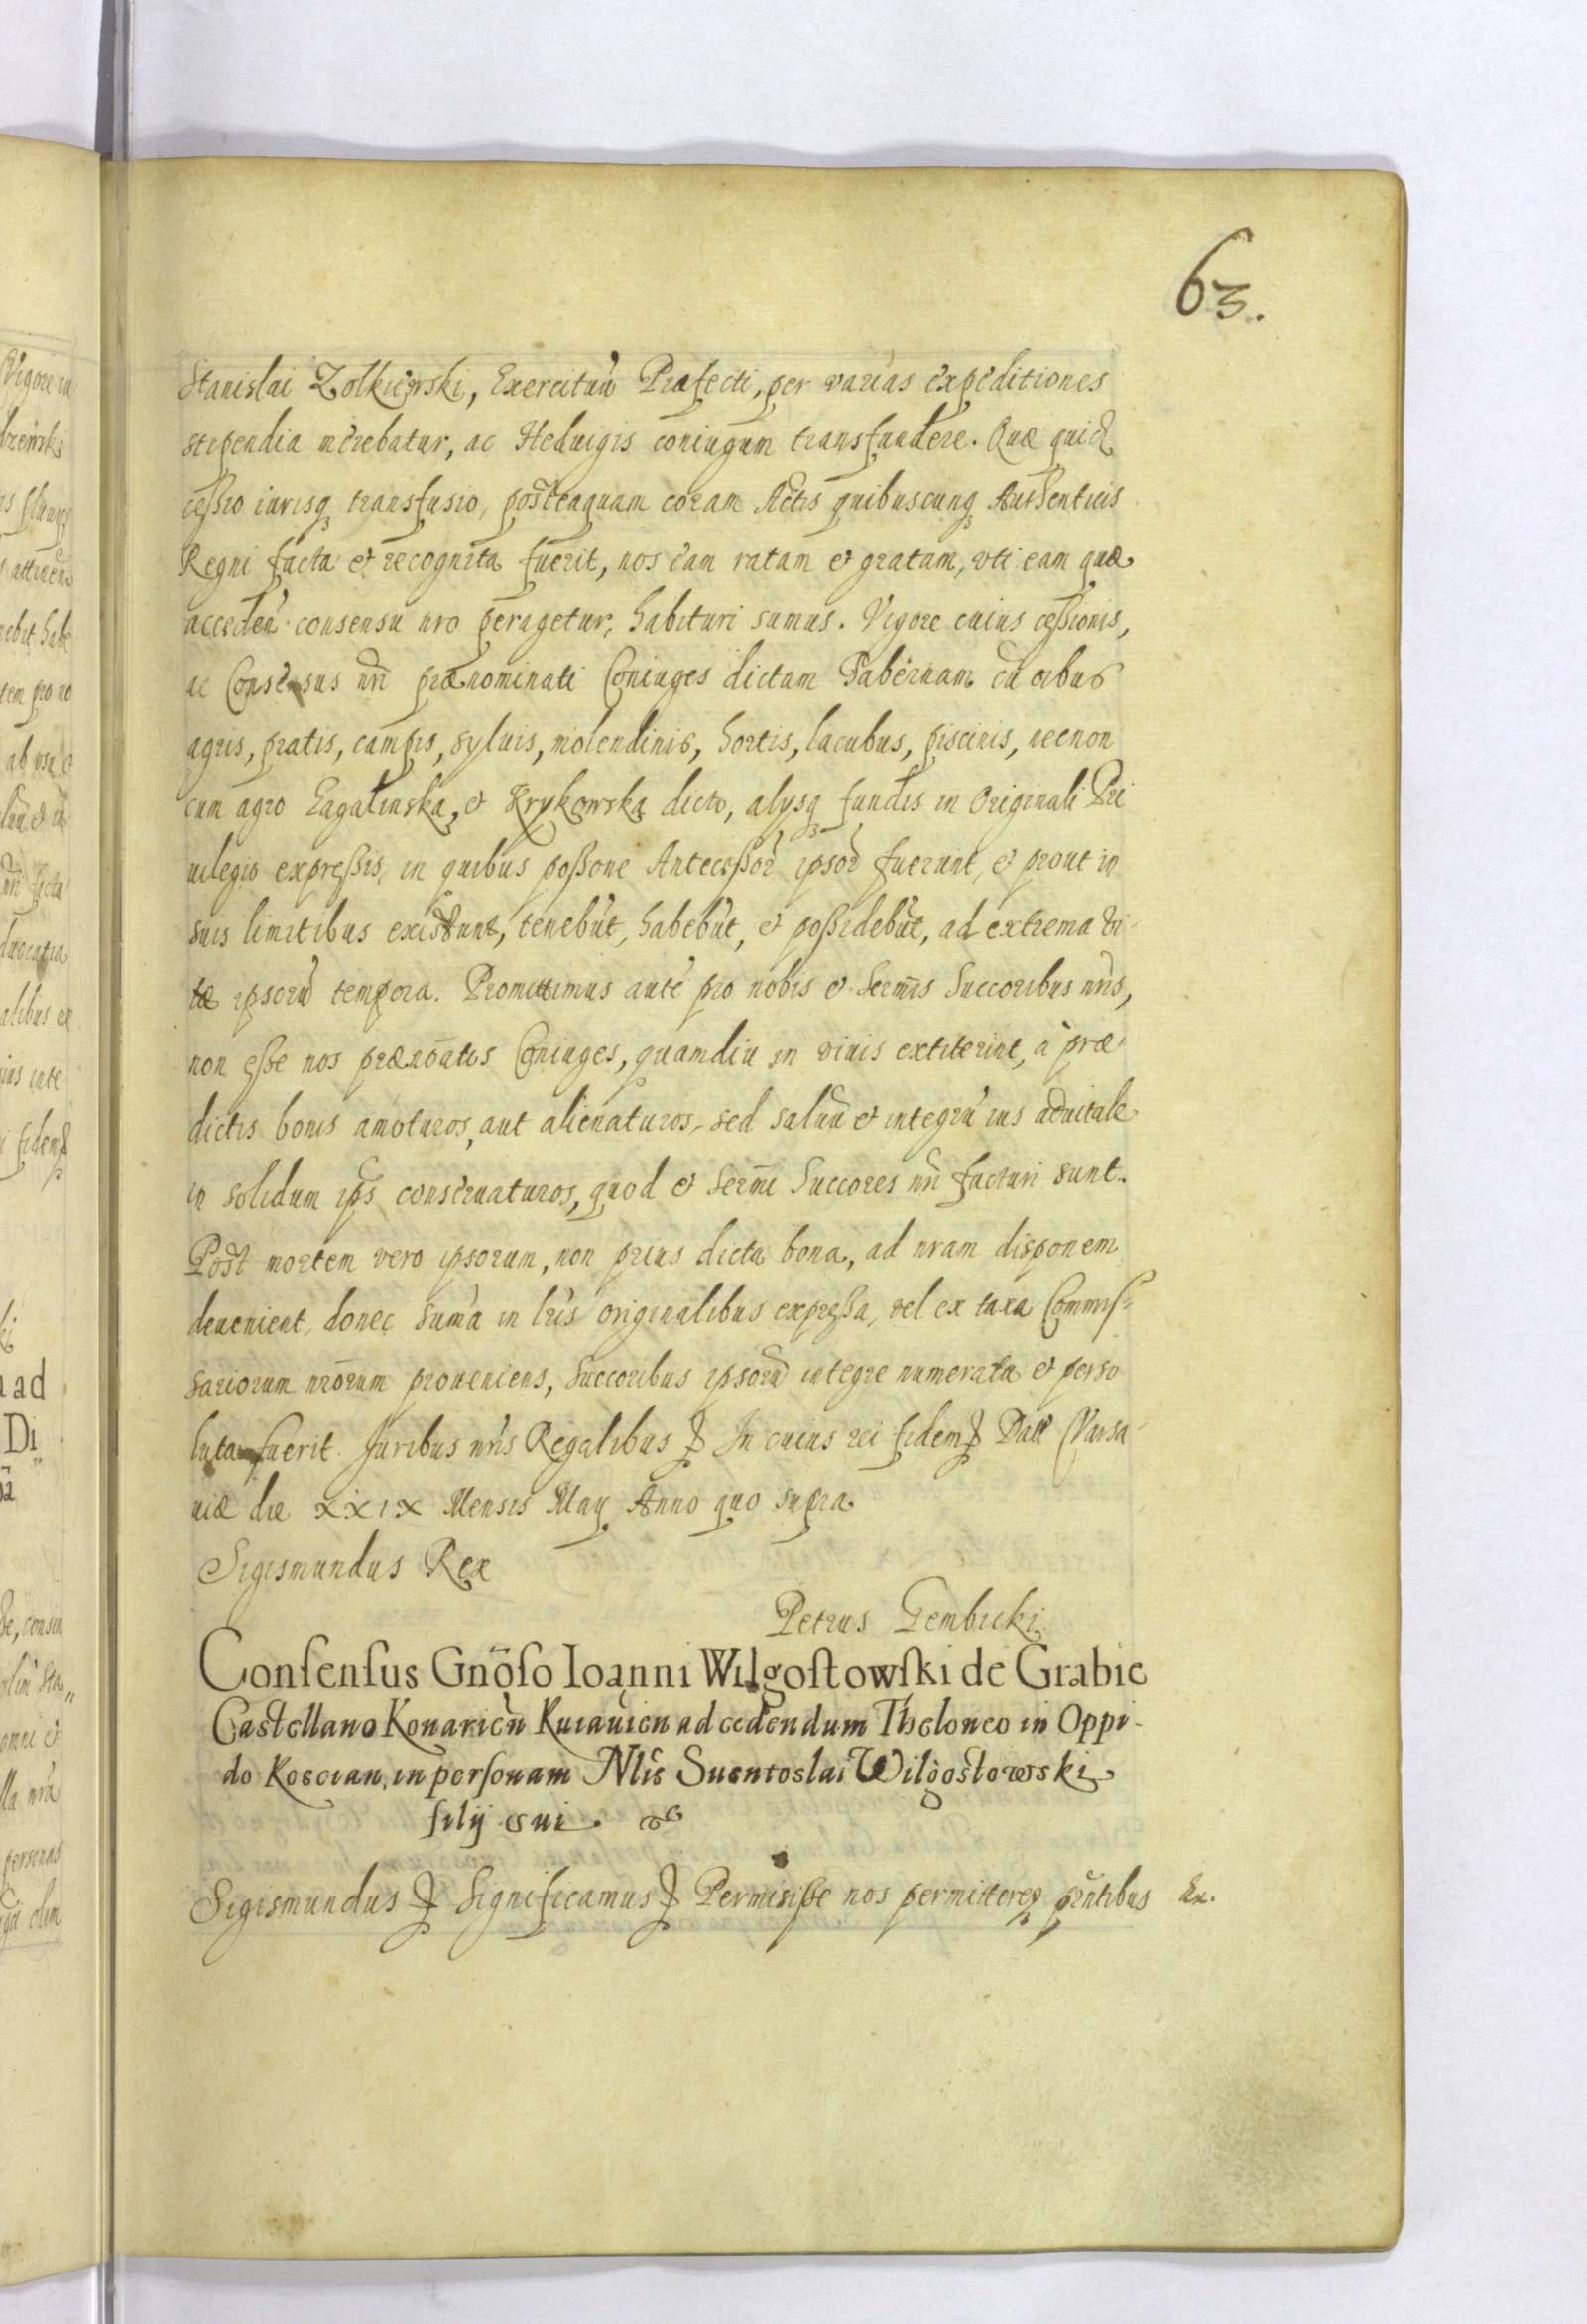 63.
Stanislai Zolkiewski, Exercituũ Præfecti, per varias expeditiones
stipendia merebatur, ac Heduigis coniugum transfundere. Quæ quid
ceßio iurisq transfusio, posteaquam coram Actis quibuscunq Authenticis
Regni facta et recognita fuerit, nos eam ratam et gratam, vti eam quæ
acceden consensu nro peragetur, habituri sumus. Vigore cuius ceßionis,
ac Consensus nri prænominati Coniuges dictam Tabernam cu oibus
agris, pratis, campis, syluis, molendinis, hortis, lacubus, piscinis, necnon
cum agro Łagalinska, et Krykowska dicto, alysq fundis in Originali Pri
uilegio expreßis, in quibus poßone Anteceßor ipsor fuerunt, et prout in
suis limitibus existunt, tenebut, habebut, et poßidebut, ad extrema vi
tæ ipsoru tempora. Promittimus aute pro nobis et Sermis Succoribus nris,
non eße nos prænoatos Coniuges, quamdiu in viuis extiterint, à præ
dictis bonis amoturos, aut alienaturos, sed saluu et integru ius aduitale
in solidum ipis conseruaturos, quod et Sermi Succores nri facturi sunt.
Post mortem vero ipsorum, non prius dicta bona, ad nram disponem
deuenient, donec suma in lris originalibus expreßa, vel ex taxa Commis=
sariorum nrorum proueniens, Succoribus ipsoru integre numerata et perso
luta fuerit. Juribus nris Regalibus In cuius rei fidem Datt Varsa
uiæ die XXIX Mensis May Anno quo supra
Sigismundus Rex
Petrus Gembicki
Consensus Gnoso Ioanni Wilgostowski de Grabie
Castellano Konarien Kuiauien ad cedendum Theloneo in Oppi-
do Koscian, in personam Nlis Suentoslai Wilgostowski
filij sui.
Sigismundus Significamus Permisiße nos permittereq pntibus Ex.